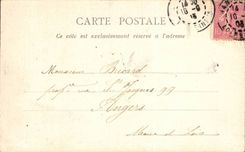 CARTE POSTALE
Ce côté est exclusivement réservé à l'adresse
Monsieur Bricard
rue St Jacques 99
Angers
Maine et Loire